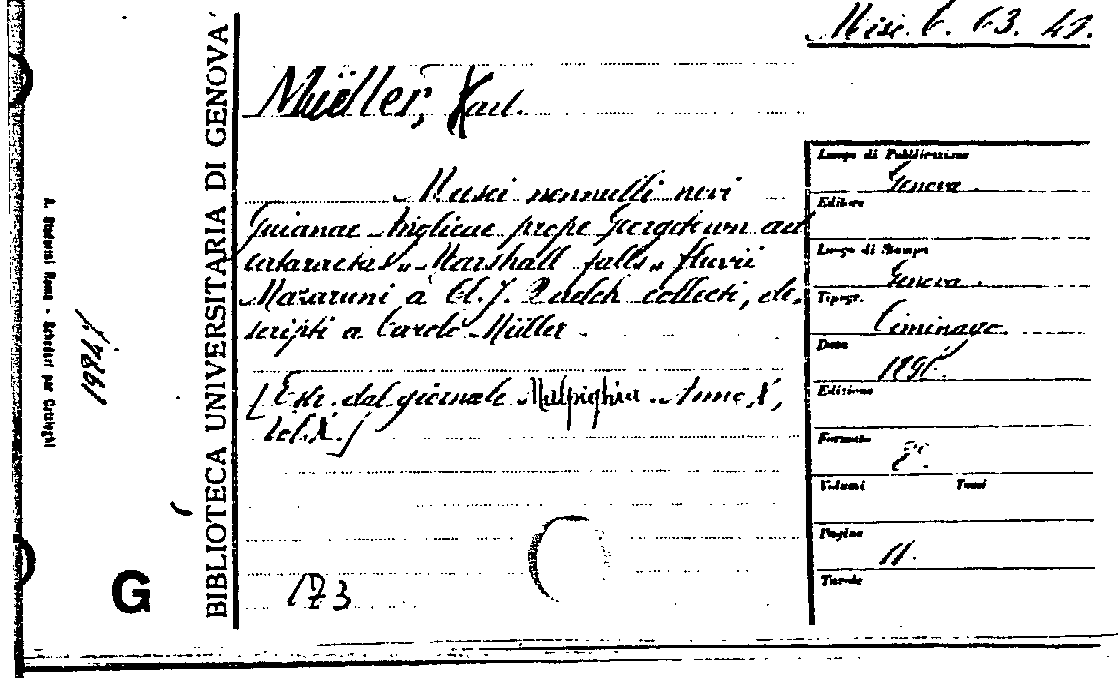 Misc. C. 63. 49.
Müller, Karl.
Musci nonnulli novi
Guianae Anglicae prope Georgetown ad
cataractas „Marshall falls„ fluvii
Mazaruni a Cl. J. Quelch collecti, de-
scripti a Carolo Müller.
[Estr. dal giornale Malpighia. Anno X,
Vol. X.]
173
Luogo di Pubblicazione
Genova.
Editore
Luogo di Stampa
Genova.
Tipogr.
Ciminago.
Data
1896.
Edizione
Formato
8°.
Volumi Tomi
Pagine
11.
Tavole
BIBLIOTECA UNIVERSITARIA DI GENOVA
G
Roma - Schedari per Cataloghi